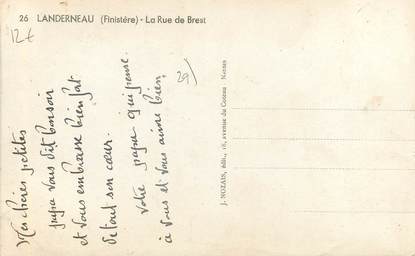 26 LANDERNEAU (Finistére) - La Rue de Brest
12 €
29/
Mes chères petites
papa vous dit bonsoir
et vous embrasse bien fort
de tout son cœur.
Votre papa qui pense
à vous et vous aime bien
J. NOZAIS, édit., 18, avenue du Coteau - Nantes